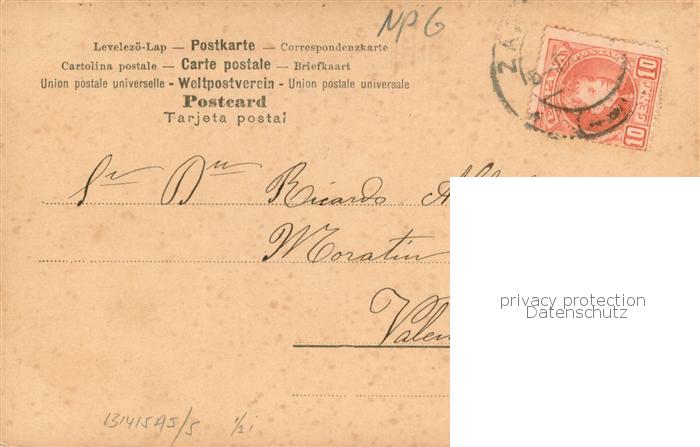 NPG
Levelező-Lap — Postkarte — Correspondenzkarte
Cartolina postale — Carte postale — Briefkaart
Union postale universelle - Weltpostverein - Union postale universale
Postcard
Tarjeta postal
10 CENT. 10
Sr Dn Ricardo
Moratín
Valen
privacy protection
Datenschutz
131415A5/5 1/2i